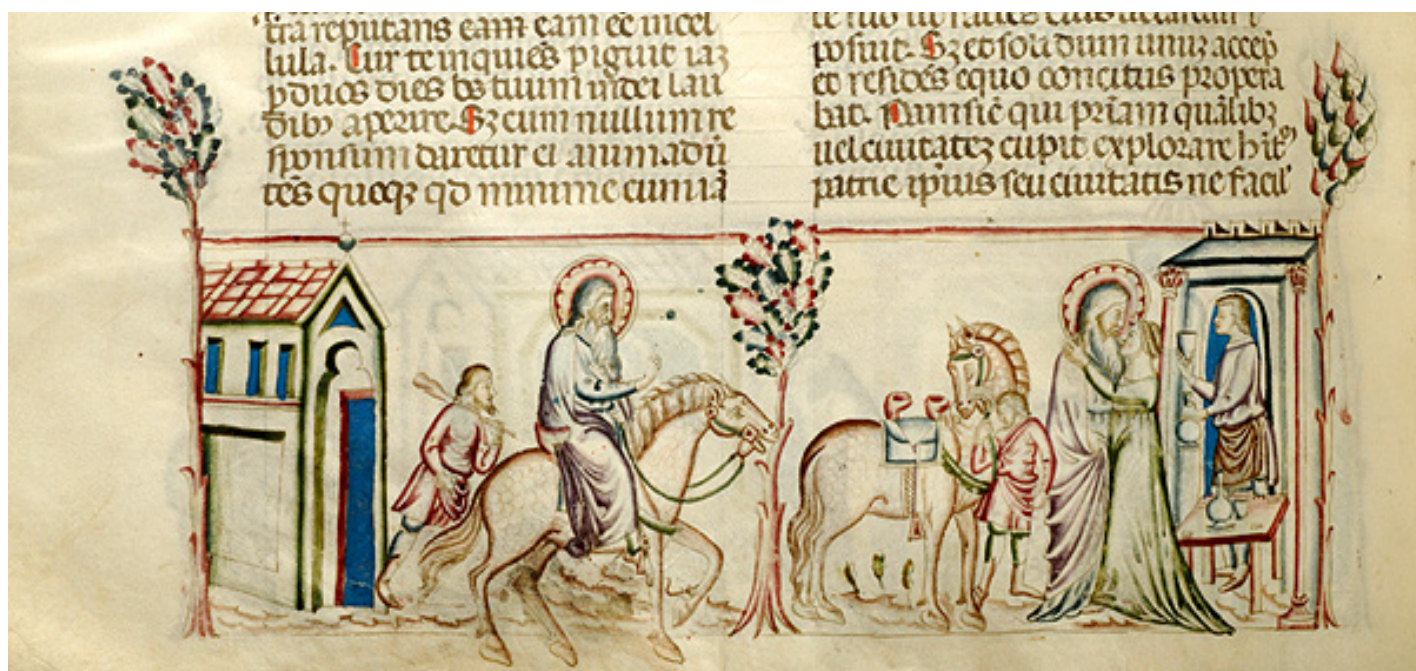 tra reputans eam eam eē incel
lula. Cur te inquiēs piguit iaꝫ
ꝑ duos dies os tuum in dei lau
dibꝫ aperire. Sꝫ cum nullum re
sponsum daretur ei animadū
tēs quoqꝫ qd minime eum iā
posuit. Sꝫ et solidum unuꝫ accep̄
et residēs equo concitus propera
bat. Nam sic̄ qui pr̄iam qualibꝫ
uel ciuitateꝫ cupit explorare hit᷒
patrie ip̄ius seu ciuitatis ne facil'